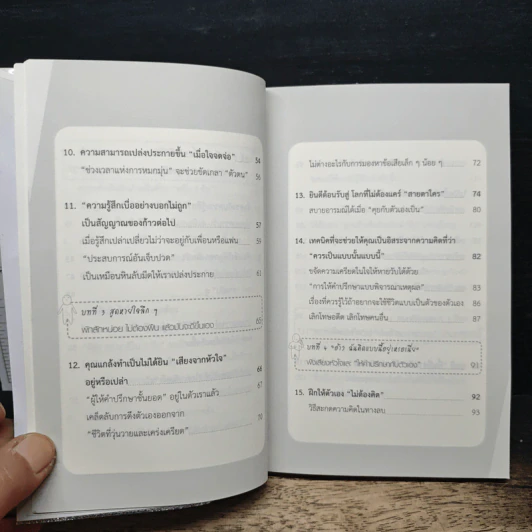 10. ความสามารถเปล่งประกายขึ้น "เมื่อใจจดจ่อ" 54
"ช่วงเวลาแห่งการหมกมุ่น" จะช่วยขัดเกลา "ตัวตน" 56
11. "ความรู้สึกเบื่ออย่างบอกไม่ถูก"
เป็นสัญญาณของก้าวต่อไป 57
เมื่อรู้สึกเปล่าเปลี่ยวไม่ว่าจะอยู่กับเพื่อนหรือแฟน 59
"ประสบการณ์อันเจ็บปวด"
เป็นเหมือนหินลับมีดให้เราเปล่งประกาย 61
บทที่ 3 สูดหายใจลึก ๆ
พักสักหน่อย ไม่ต้องฝืน แล้วมันจะดีขึ้นเอง 65
12. คุณแกล้งทำเป็นไม่ได้ยิน "เสียงจากหัวใจ"
อยู่หรือเปล่า 66
"ผู้ให้คำปรึกษาชั้นยอด" อยู่ในตัวเราแล้ว 68
เคล็ดลับการดึงตัวเองออกจาก
"ชีวิตที่วุ่นวายและเคร่งเครียด" 70
ไม่ต่างอะไรกับการมองหาข้อเสียเล็ก ๆ น้อย ๆ 72
13. ยินดีต้อนรับสู่ โลกที่ไม่ต้องแคร์ "สายตาใคร" 74
สบายอารมณ์ได้เมื่อ "คุยกับตัวเองเป็น" 80
14. เทคนิคที่จะช่วยให้คุณเป็นอิสระจากความคิดที่ว่า
"ควรเป็นแบบนั้นแบบนี้" 82
ขจัดความเครียดในใจให้หายวับได้ด้วย
"การให้คำปรึกษาแบบพิจารณาเหตุผล"
เรื่องที่ควรรู้ไว้ถ้าอยากจะใช้ชีวิตแบบเป็นตัวของตัวเอง
เลิกโทษอดีต เลิกโทษคนอื่น
บทที่ 4
ฟังเสียงหัวใจแล้ว "ให้คำปรึกษากับตัวเอง" 91
15. ฝึกให้ตัวเอง "ไม่ต้องคิด" 92
วิธีสะกดความคิดในทางลบ 93